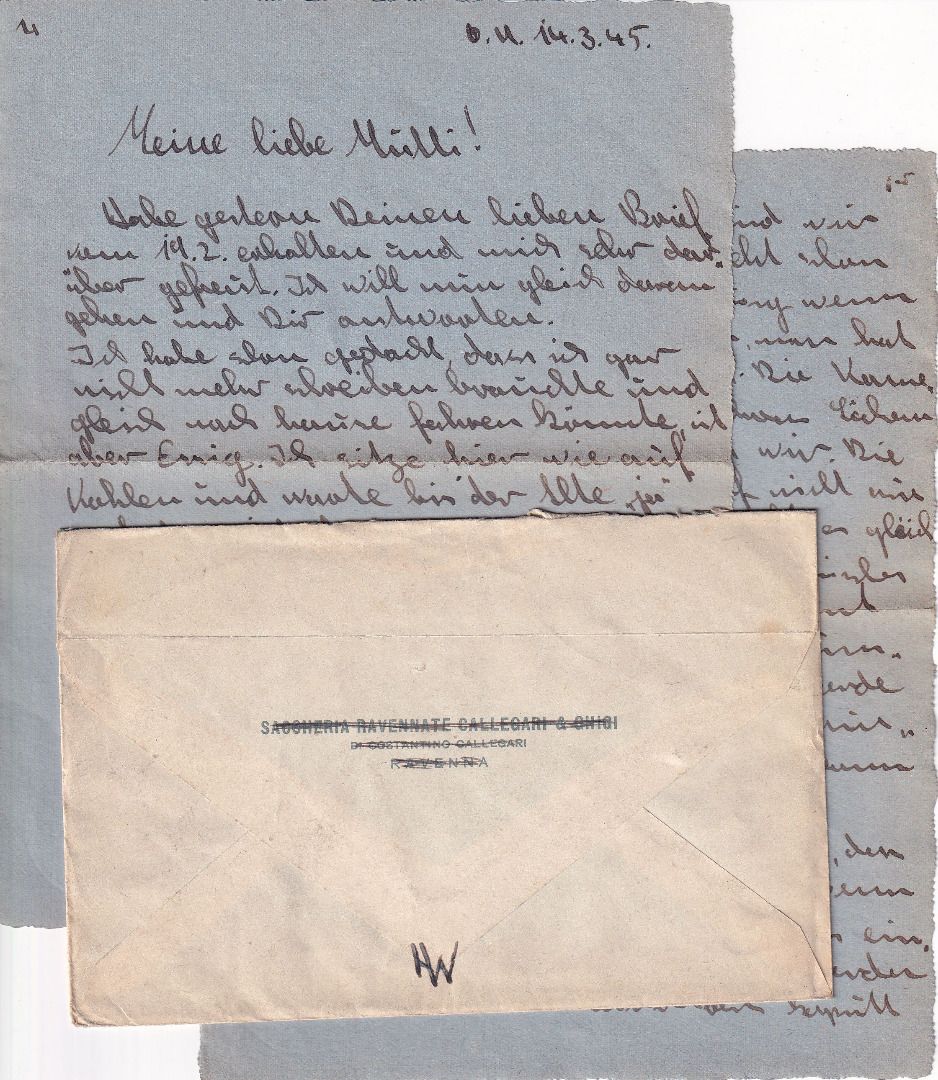 O.U. 14.3.45.
Meine liebe Mutti!
Habe gestern Deinen lieben Brief
vom 19.2. erhalten und mich sehr dar-
über gefreut. Ich will nun gleich daran
gehen und Dir antworten.
Ich habe schon gedacht, dass ich gar
nicht mehr schreiben brauchte und
gleich nach hause fahren könnte, ist
aber Essig. Ich sitze hier wie auf
Kohlen und warte bis der Alte "ja"
nd wir
cht schon
wenn
, man hat
. Die Kame-
wir. Die
nicht mir
es gleich
erde
, den
enn
ein.
erden
SACCHERIA RAVENNATE CALLEGARI & GHIGI
DI COSTANTINO CALLEGARI
RAVENNA
HW